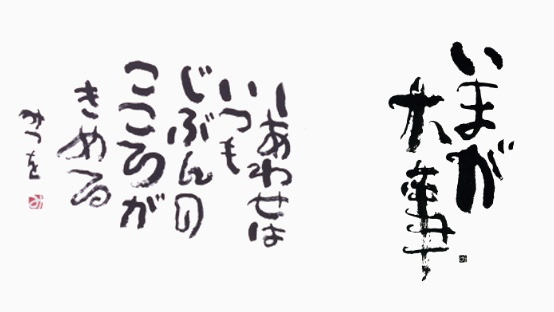 いまが
大事
しあわせは
いつも
じぶんの
こころが
きめる
みつを